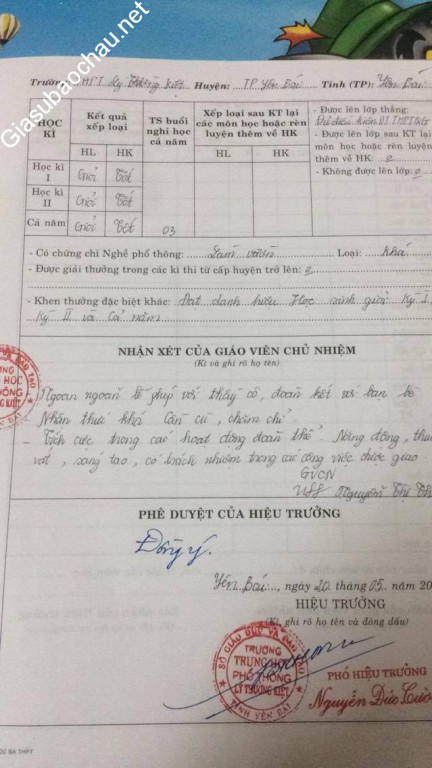 Giasubaochau.net
Trường: THPT Lý Thường Kiệt Huyện: TP Yên Bái Tỉnh (TP): Yên Bái
HỌC KÌ
Kết quả xếp loại
HL HK
TS buổi nghỉ học cả năm
Xếp loại sau KT lại các môn học hoặc rèn luyện thêm về HK
HL HK
- Được lên lớp thẳng:
Đủ điều kiện DT THPTQG
- Được lên lớp sau KT lại
môn học hoặc rèn luyện
thêm về HK: 0
- Không được lên lớp: 0
Học kì I Giỏi Tốt
Học kì II Giỏi Tốt
Cả năm Giỏi Tốt 03
- Có chứng chỉ Nghề phổ thông: Làm vườn Loại: khá
- Được giải thưởng trong các kì thi từ cấp huyện trở lên: 0
- Khen thưởng đặc biệt khác: Đạt danh hiệu Học sinh giỏi Kỳ I,
Kỳ II và Cả năm
NHẬN XÉT CỦA GIÁO VIÊN CHỦ NHIỆM
(Kí và ghi rõ họ tên)
Ngoan ngoãn lễ phép với thầy cô, đoàn kết với bạn bè
Nhận thức khá Cần cù, chăm chỉ
- Tích cực trong các hoạt động đoàn thể. Năng động, tháo
vát, sáng tạo, có trách nhiệm trong các công việc được giao
GVCN
Nguyễn Thị
PHÊ DUYỆT CỦA HIỆU TRƯỞNG
Đồng ý.
Yên Bái, ngày 20 tháng 05 năm 20
HIỆU TRƯỞNG
(Kí, ghi rõ họ tên và đóng dấu)
BỘ GIÁO DỤC VÀ ĐÀO TẠO
TRƯỜNG
TRUNG HỌC
PHỔ THÔNG
LÝ THƯỜNG KIỆT
TỈNH YÊN BÁI
PHÓ HIỆU TRƯỞNG
Nguyễn Đức